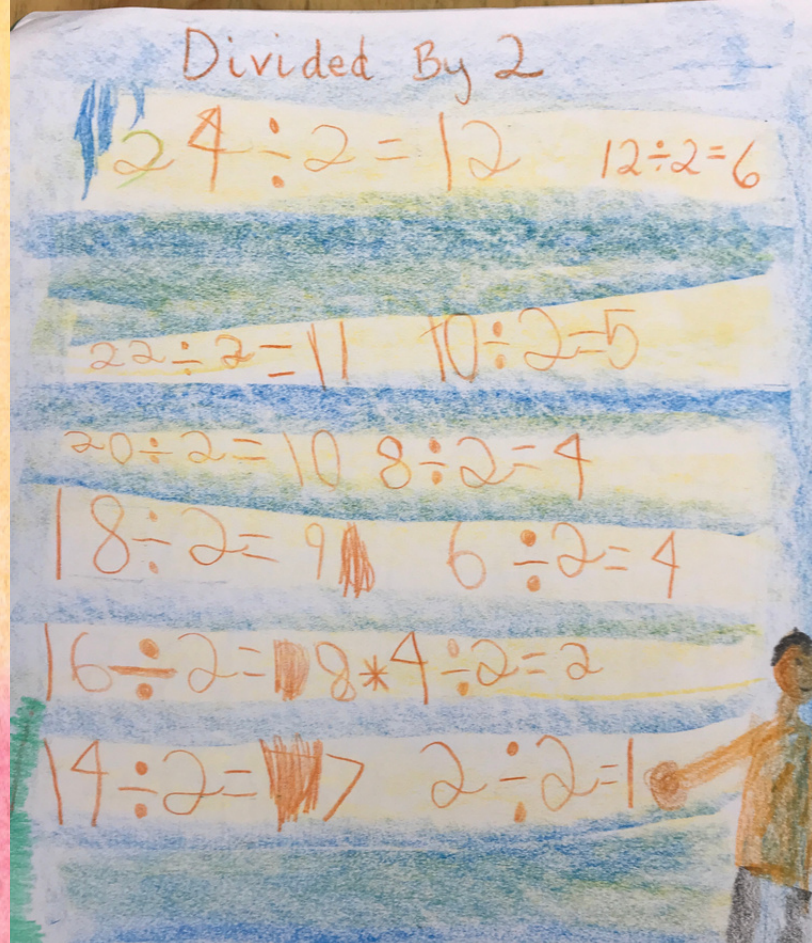 Divided By 2
24÷2=12 12÷2=6
22÷2=11 10÷2=5
20÷2=10 8÷2=4
18÷2=9 6÷2=4
16÷2=8*4÷2=2
14÷2=7 2÷2=1